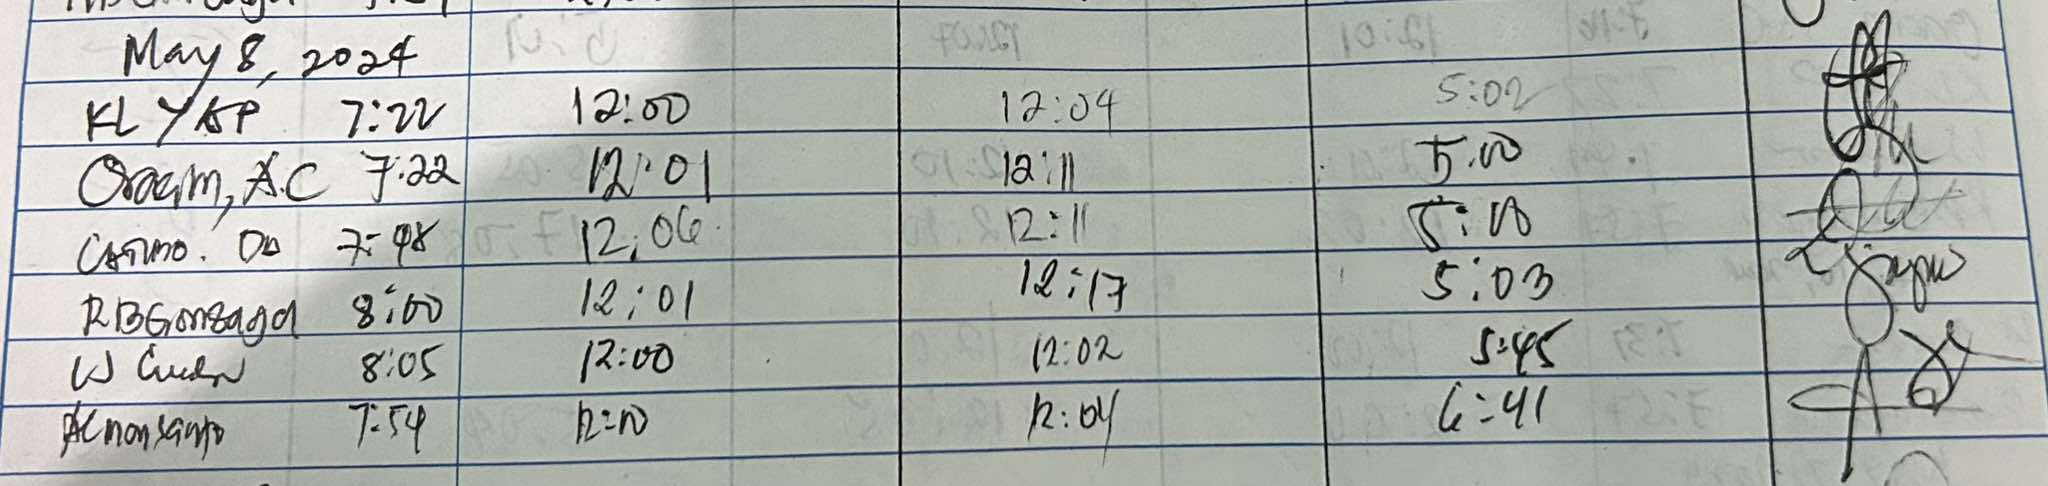 May 8, 2024
KL YAP 7:22 12:00 12:04 5:02
Oracim, A.C 7:22 12:01 12:11 5:00
Casimo. OD 7:48 12:06 12:11 5:00
RBGonzaga 8:00 12:01 12:17 5:03
W 8:05 12:00 12:02 5:45
ACmonsanto 7:54 12:00 12:04 6:41